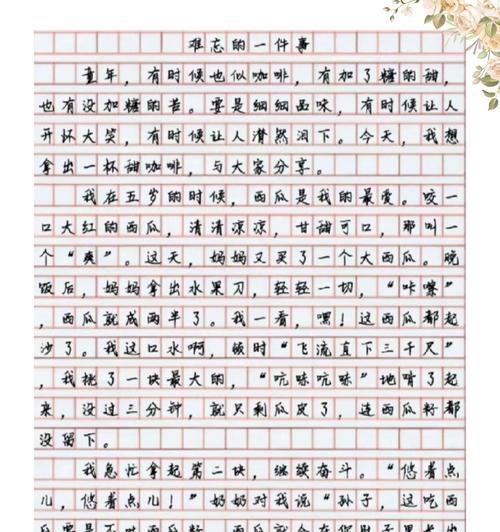 难忘的一件事
童年，有时候也似咖啡，有加了糖的甜，
也有没加糖的苦。要是细细品味，有时候让人
开怀大笑，有时候让人潸然泪下。今天，我想
拿出一杯甜咖啡，与大家分享。
我在五岁的时候，西瓜是我的最爱。咬一
口大红的西瓜，清清凉凉，甘甜可口，那叫一
个“爽”。这天，妈妈又买了一个大西瓜。晚
饭后，妈妈拿出水果刀，轻轻一切，“咔嚓”
，西瓜就成两半了。我一看，嘿！这西瓜都起
沙了。我这口水啊，顿时“飞流直下三千尺”
，我挑了一块最大的，“吭哧吭哧”地啃了起
来，没过三分钟，就只剩瓜皮了，连西瓜籽都
没留下。
我急忙拿起第二块，继续奋斗。“悠着点
儿，悠着点儿！”奶奶对我说“孙子，这吃西
瓜要是不吐西瓜籽，西瓜就会在你肚子里